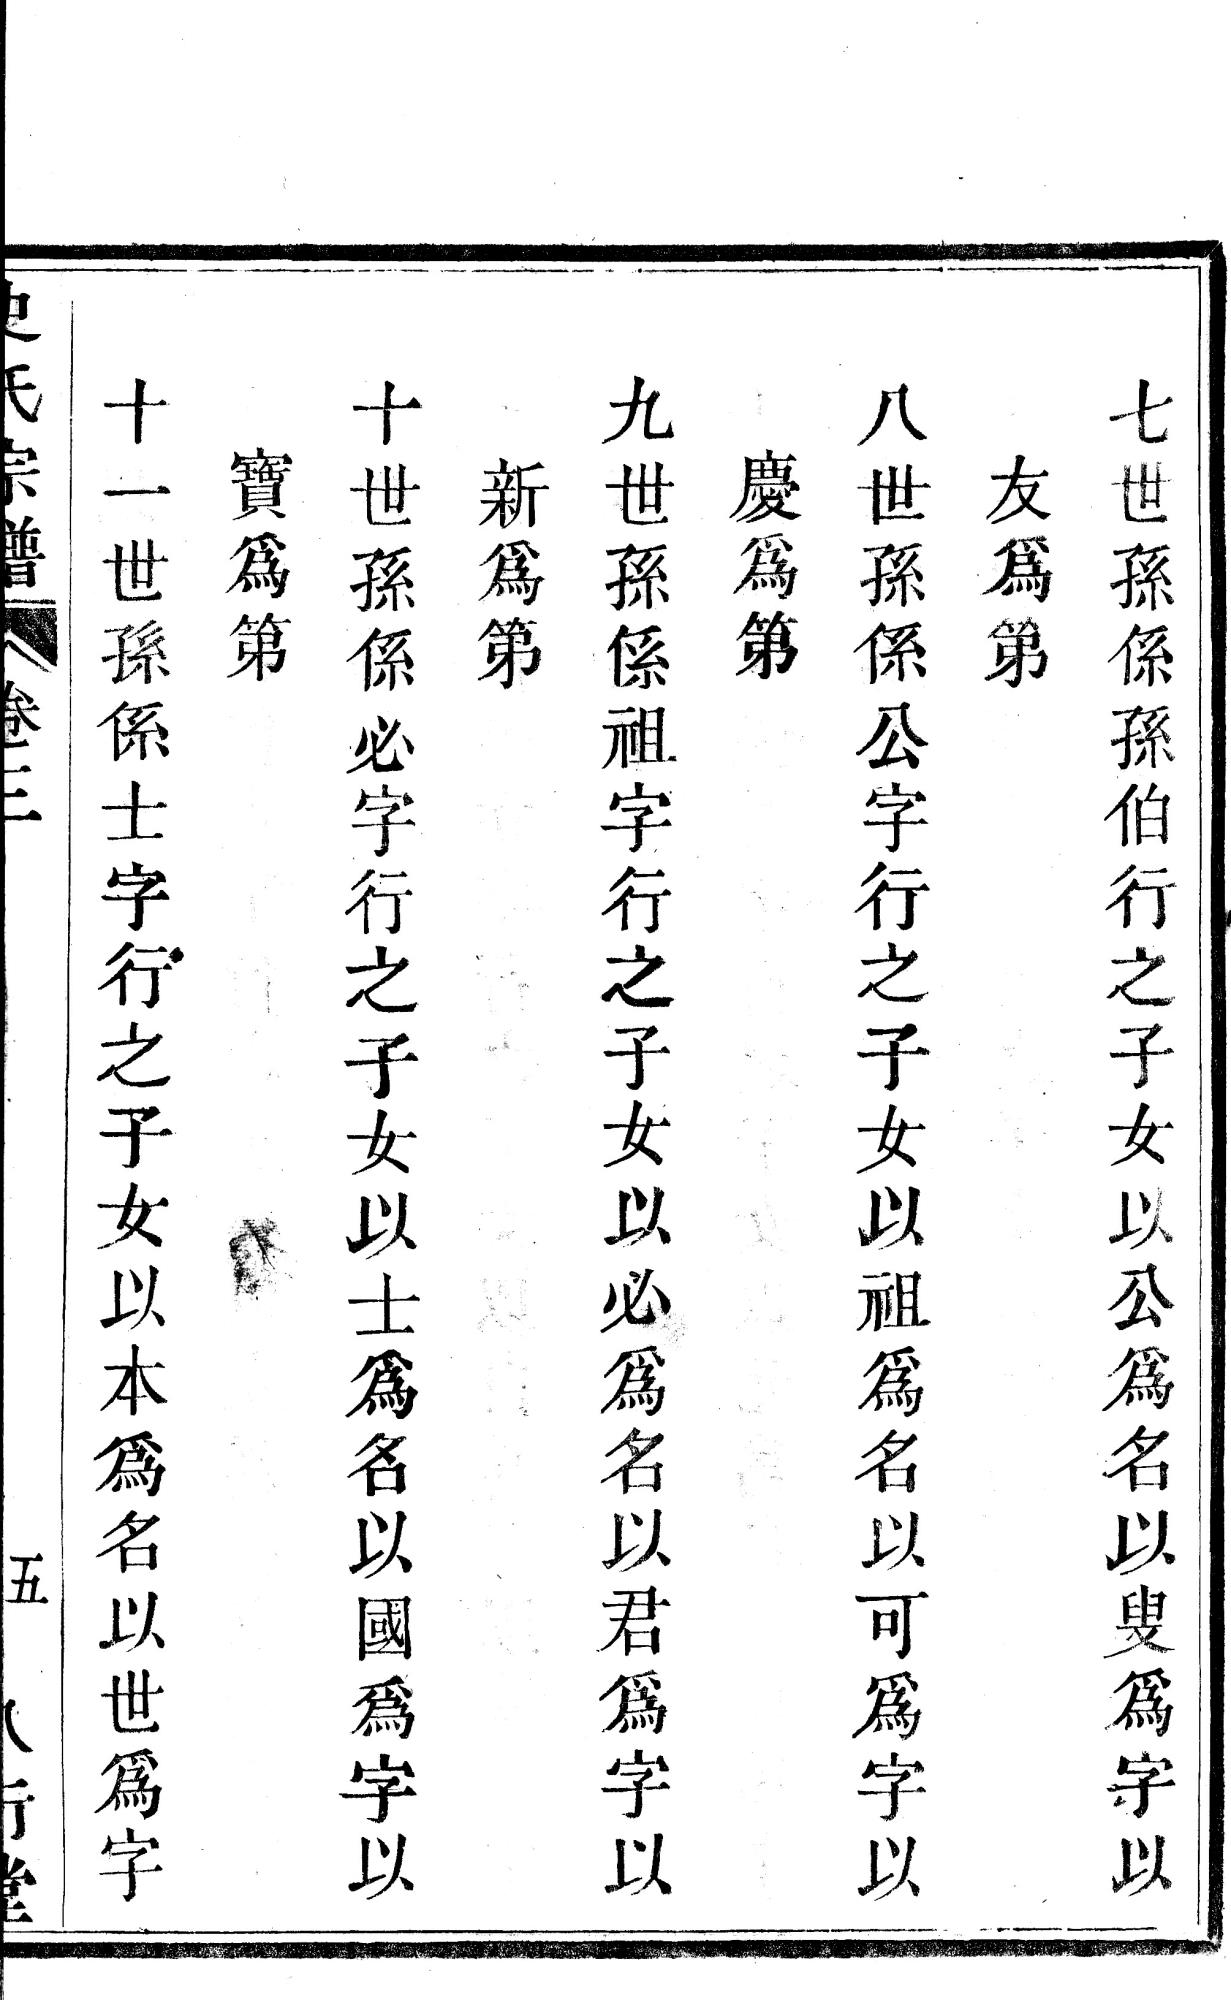 七世孫係孫伯行之子女以公爲名以叟爲字以
友爲第
八世孫係公字行之子女以祖爲名以可爲字以
慶爲第
九世孫係祖字行之子女以必爲名以君爲字以
新爲第
十世孫係必字行之子女以士爲名以國爲字以
寶爲第
十一世孫係士字行之子女以本爲名以世爲字
史氏宗譜 卷三 五 八行堂